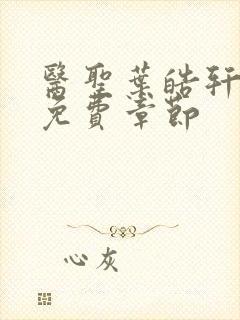 醫聖葉皓軒
免費章節
心灰